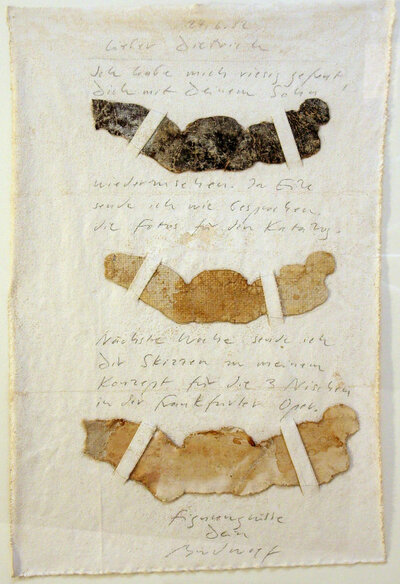 24.6.82
Lieber Dietrich,
Ich habe mich riesig gefreut
Dich mit Deinem Sohn
wiederzusehen. In Eile
sende ich wie besprochen,
die Fotos für den Katalog.
Nächste Woche sende ich
Dir Skizzen zu meinem
Konzept für die 3 Nischen
in der Frankfurter Oper.
Dein